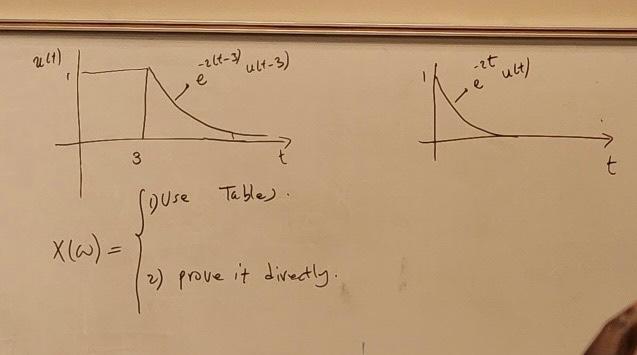 u(t)
1
e^-2(t-3) u(t-3)
3
t
1
e^-2t u(t)
t
X(ω) =
1) Use Tables.
2) prove it directly.